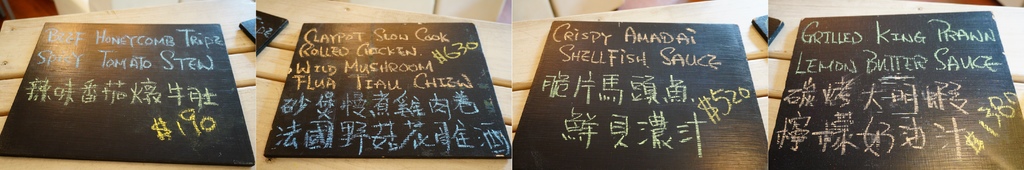 BEEF HONEYCOMB TRIPE
SPICY TOMATO STEW
辣味番茄燴牛肚
$190
CLAYPOT SLOW COOK
ROLLED CHICKEN
WILD MUSHROOM
砂煲慢煮雞肉卷
法國野菇花雕酒
CRISPY AMADAI
SHELLFISH SAUCE
脆片馬頭魚
鮮貝濃汁
$520
GRILLED KING PRAWN
LEMON BUTTER SAUCE
碳烤大明蝦
檸檬奶油汁